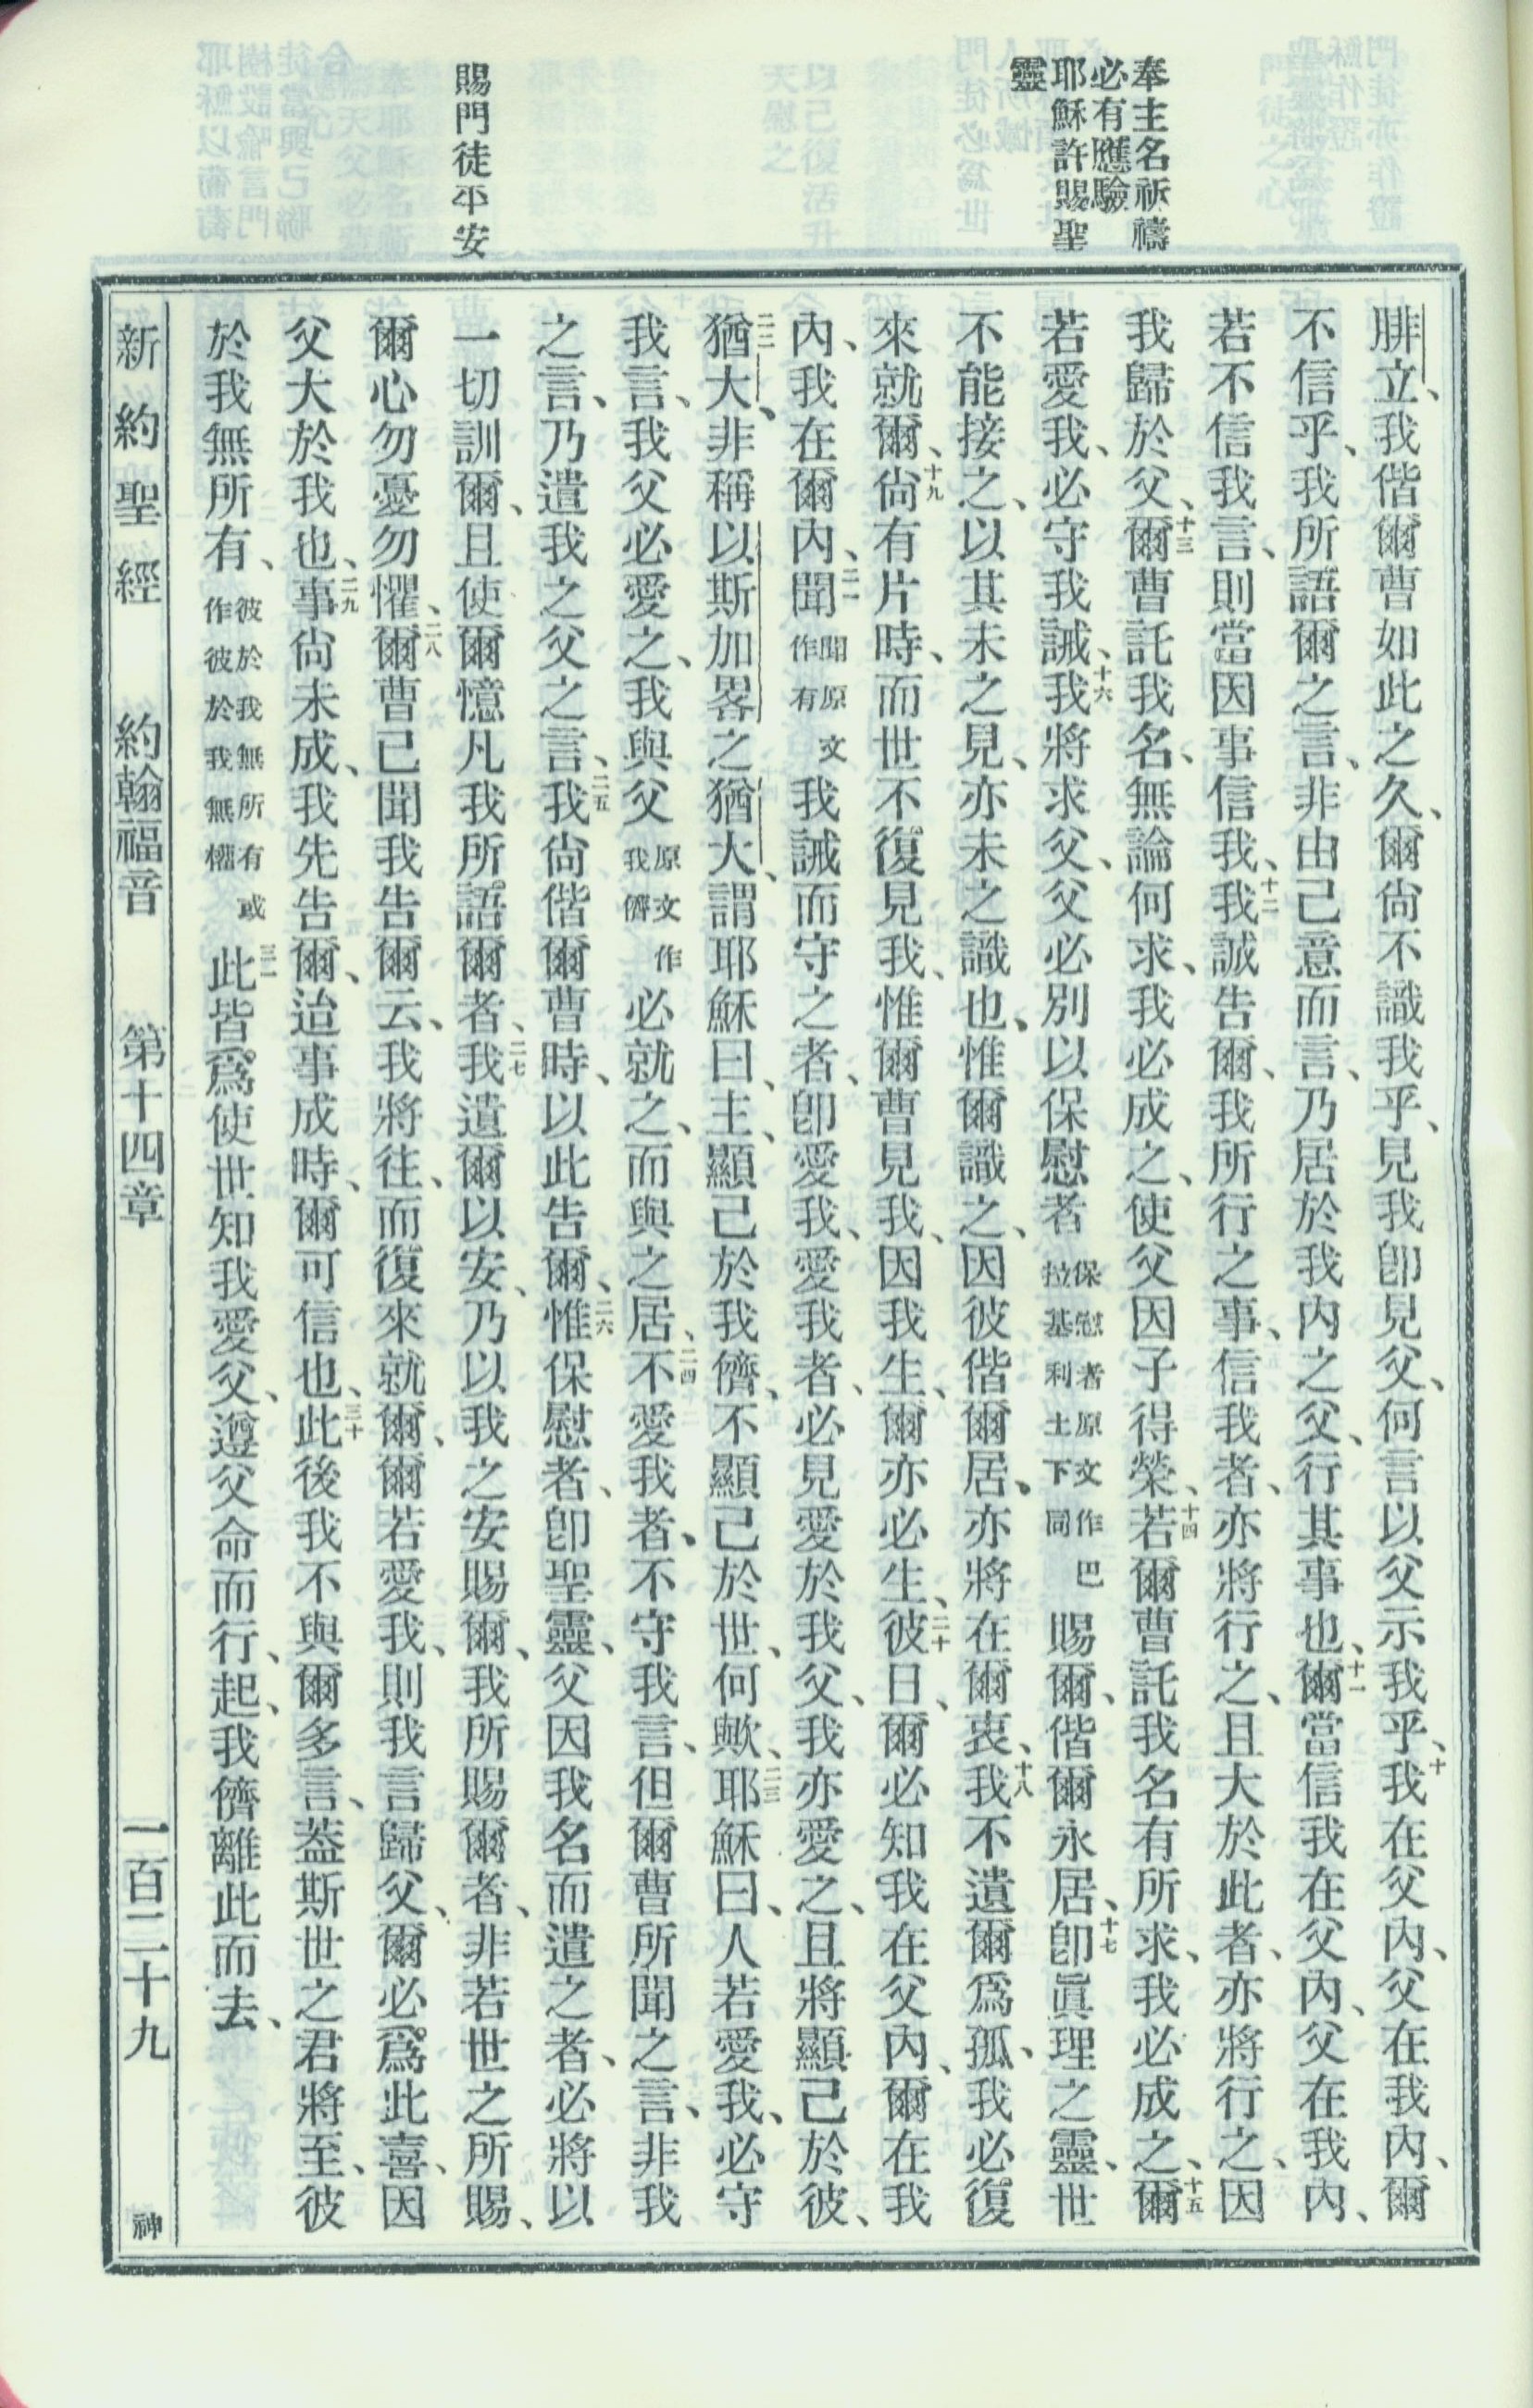 奉主名祈禱
必有應驗
耶穌許賜聖
靈
賜門徒平安
腓立、我偕爾曹如此之久、爾尙不識我乎、見我卽見父、何言以父示我乎、十我在父內、父在我內、爾
不信乎、我所語爾之言、非由己意而言、乃居於我內之父、行其事也、十一爾當信我在父內、父在我內、
若不信我言、則當因事信我、十二我誠告爾、我所行之事、信我者、亦將行之、且大於此者、亦將行之、因
我歸於父、十三爾曹託我名、無論何求、我必成之、使父因子得榮、十四若爾曹託我名有所求、我必成之、十五爾
若愛我、必守我誡、十六我將求父、父必別以保慰者保慰者原文作巴拉基利土下同賜爾、偕爾永居、十七卽眞理之靈、世
不能接之、以其未之見、亦未之識也、惟爾識之、因彼偕爾居、亦將在爾衷、十八我不遺爾爲孤、我必復
來就爾、十九尙有片時、而世不復見我、惟爾曹見我、因我生、爾亦必生、二十彼日、爾必知我在父內、爾在我
內、我在爾內、二一聞聞原文作有我誡而守之者、卽愛我、愛我者、必見愛於我父、我亦愛之、且將顯己於彼、
二二猶大、非稱以斯加畧之猶大、謂耶穌曰、主、顯己於我儕、不顯己於世、何歟、二三耶穌曰、人若愛我、必守
我言、我父必愛之、我與父原文作我儕必就之、而與之居、二四不愛我者、不守我言、但爾曹所聞之言、非我
之言、乃遣我之父之言、二五我尙偕爾曹時、以此告爾、二六惟保慰者、卽聖靈、父因我名而遣之者、必將以
一切訓爾、且使爾憶凡我所語爾者、二七我遺爾以安、乃以我之安賜爾、我所賜爾者、非若世之所賜、
爾心勿憂勿懼、二八爾曹已聞我告爾云、我將往、而復來就爾、爾若愛我、則我言歸父、爾必爲此喜、因
父大於我也、二九事尙未成、我先告爾、迨事成時、爾可信也、三十此後我不與爾多言、蓋斯世之君將至、彼
於我無所有、彼於我無所有或作彼於我無權三一此皆爲使世知我愛父、遵父命而行、起、我儕離此而去、
新約聖經 約翰福音 第十四章 一百二十九 神